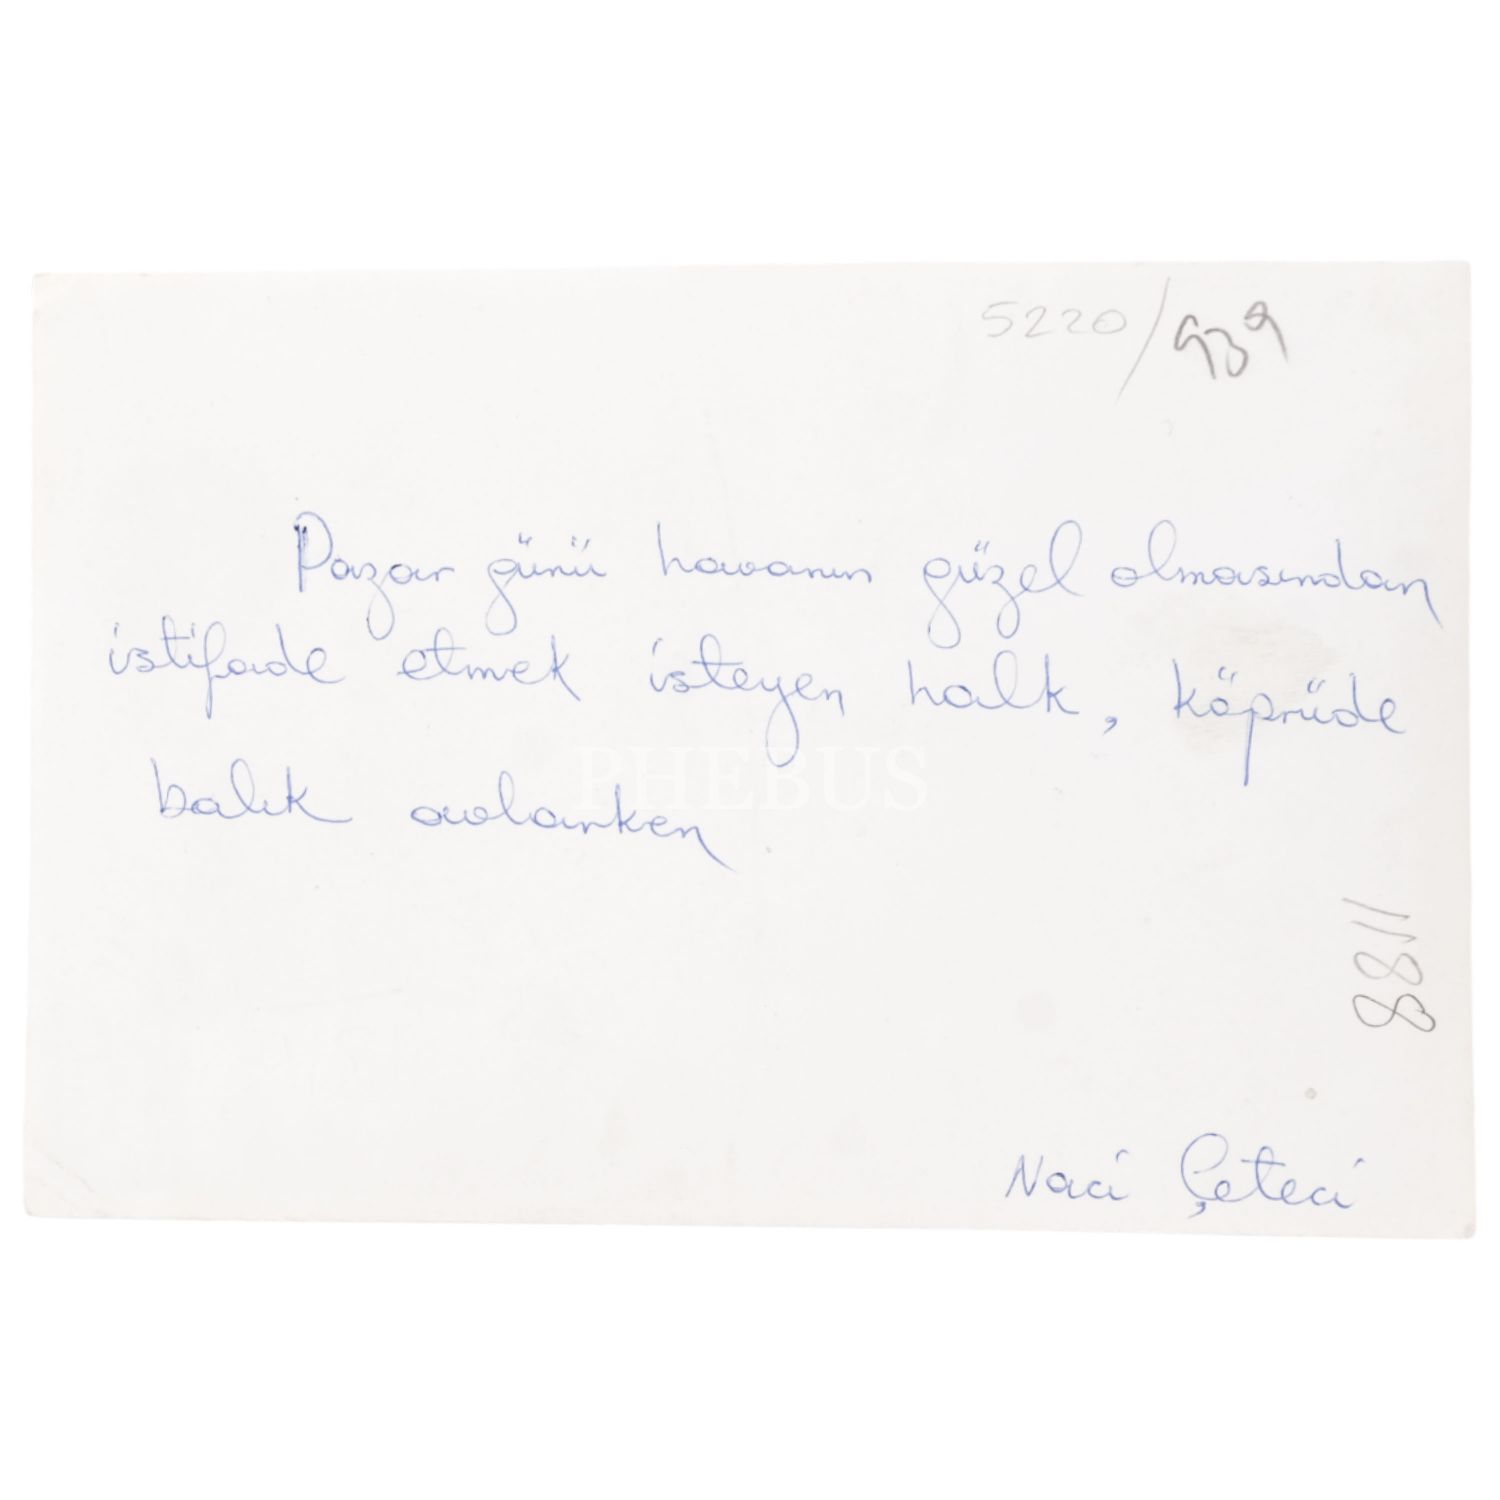 5220/939
Pazar günü havanın güzel olmasından
istifade etmek isteyen halk, köprüde
balık avlarken
PHEBUS
8811
Naci Çeteci